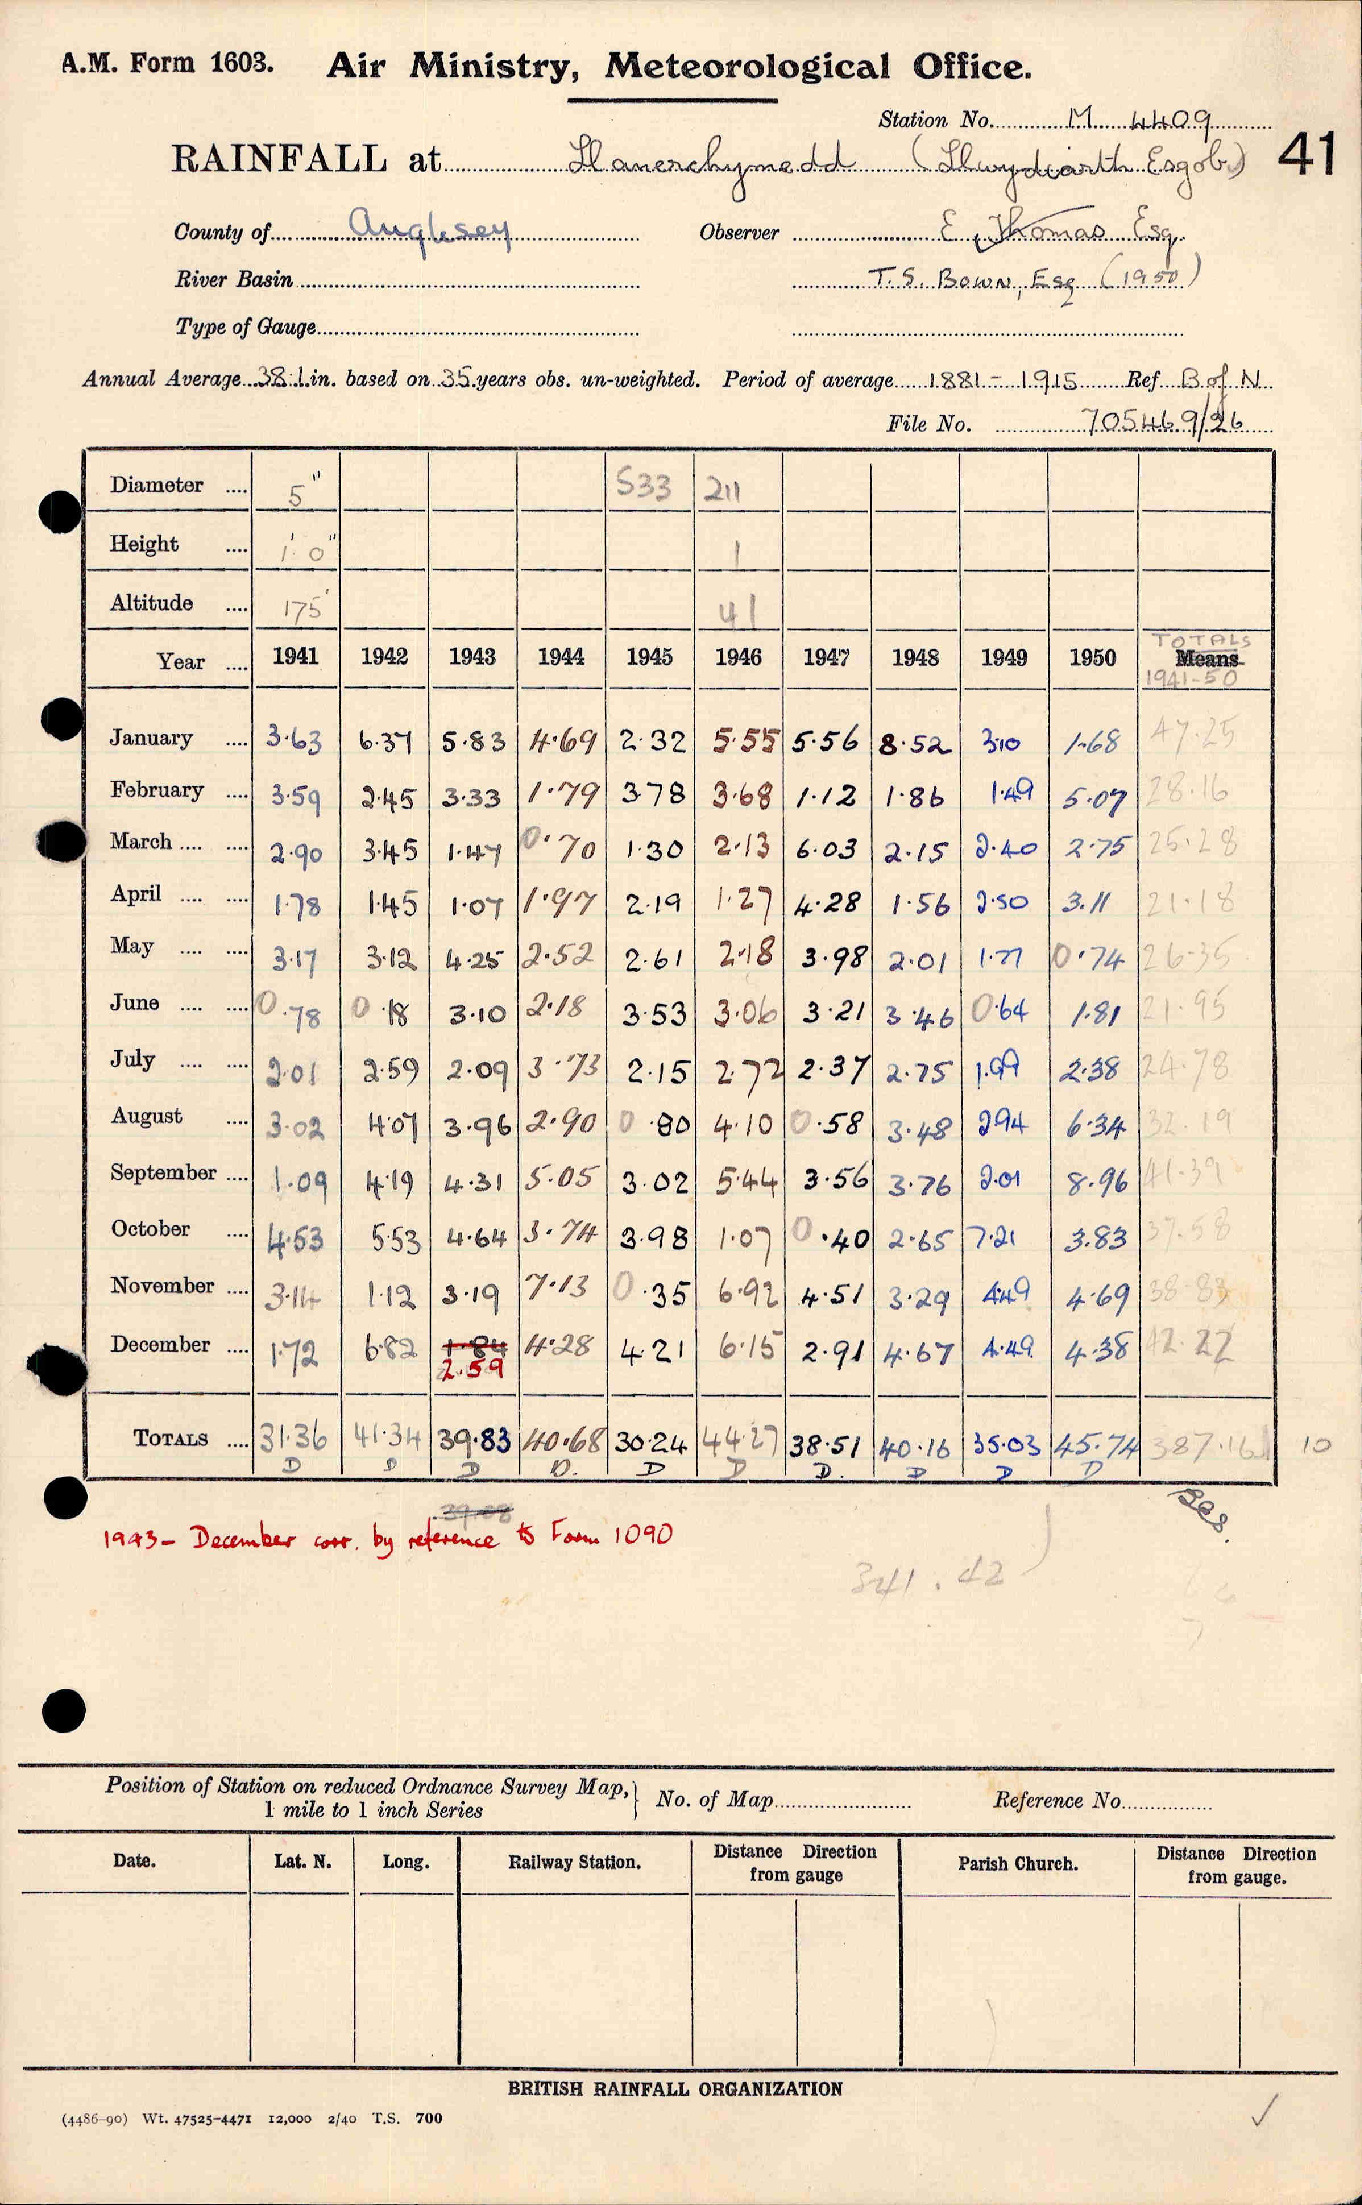 A.M. Form 1603. Air Ministry, Meteorological Office.
Station No. M 4409
RAINFALL at Llanerchymedd (Llwydiarth Esgob) 41
County of Anglesey Observer E. Thomas Esq.
River Basin T.S. Bown, Esq (1950)
Type of Gauge
Annual Average 38.1 in. based on 35 years obs. un-weighted. Period of average 1881 - 1915 Ref B of N
File No. 705469/26
Diameter .... 5" S33 211
Height .... 1' 0" 1
Altitude .... 175' 41
Year .... 1941 1942 1943 1944 1945 1946 1947 1948 1949 1950 TOTALS Means 1941-50
January .... 3.63 6.37 5.83 4.69 2.32 5.55 5.56 8.52 3.10 1.68 47.25
February .... 3.59 2.45 3.33 1.79 3.78 3.68 1.12 1.86 1.49 5.07 28.16
March .... .... 2.90 3.45 1.47 0.70 1.30 2.13 6.03 2.15 2.40 2.75 25.28
April .... .... 1.78 1.45 1.07 1.97 2.19 1.27 4.28 1.56 2.50 3.11 21.18
May .... .... 3.17 3.12 4.25 2.52 2.61 2.18 3.98 2.01 1.77 0.74 26.35
June .... .... 0.78 0.18 3.10 2.18 3.53 3.06 3.21 3.46 0.64 1.81 21.95
July .... .... 2.01 2.59 2.09 3.73 2.15 2.72 2.37 2.75 1.99 2.38 24.78
August .... 3.02 4.07 3.96 2.90 0.80 4.10 0.58 3.48 2.94 6.34 32.19
September .... 1.09 4.19 4.31 5.05 3.02 5.44 3.56 3.76 2.01 8.96 41.39
October .... 4.53 5.53 4.64 3.74 3.98 1.07 0.40 2.65 7.21 3.83 37.58
November .... 3.14 1.12 3.19 7.13 0.35 6.92 4.51 3.29 4.49 4.69 38.83
December .... 1.72 6.82 1.84 4.28 4.21 6.15 2.91 4.67 4.49 4.38 42.22
2.59
TOTALS .... 31.36 41.34 39.83 40.68 30.24 44.27 38.51 40.16 35.03 45.74 387.16 10
D D D D. D D D. D D D
39.08
1943 - December corr. by reference to Form 1090
341.42
Position of Station on reduced Ordnance Survey Map, 1 mile to 1 inch Series } No. of Map Reference No.
Date. Lat. N. Long. Railway Station. Distance Direction from gauge Parish Church. Distance Direction from gauge.
BRITISH RAINFALL ORGANIZATION
(4486-90) Wt. 47525-4471 12,000 2/40 T.S. 700